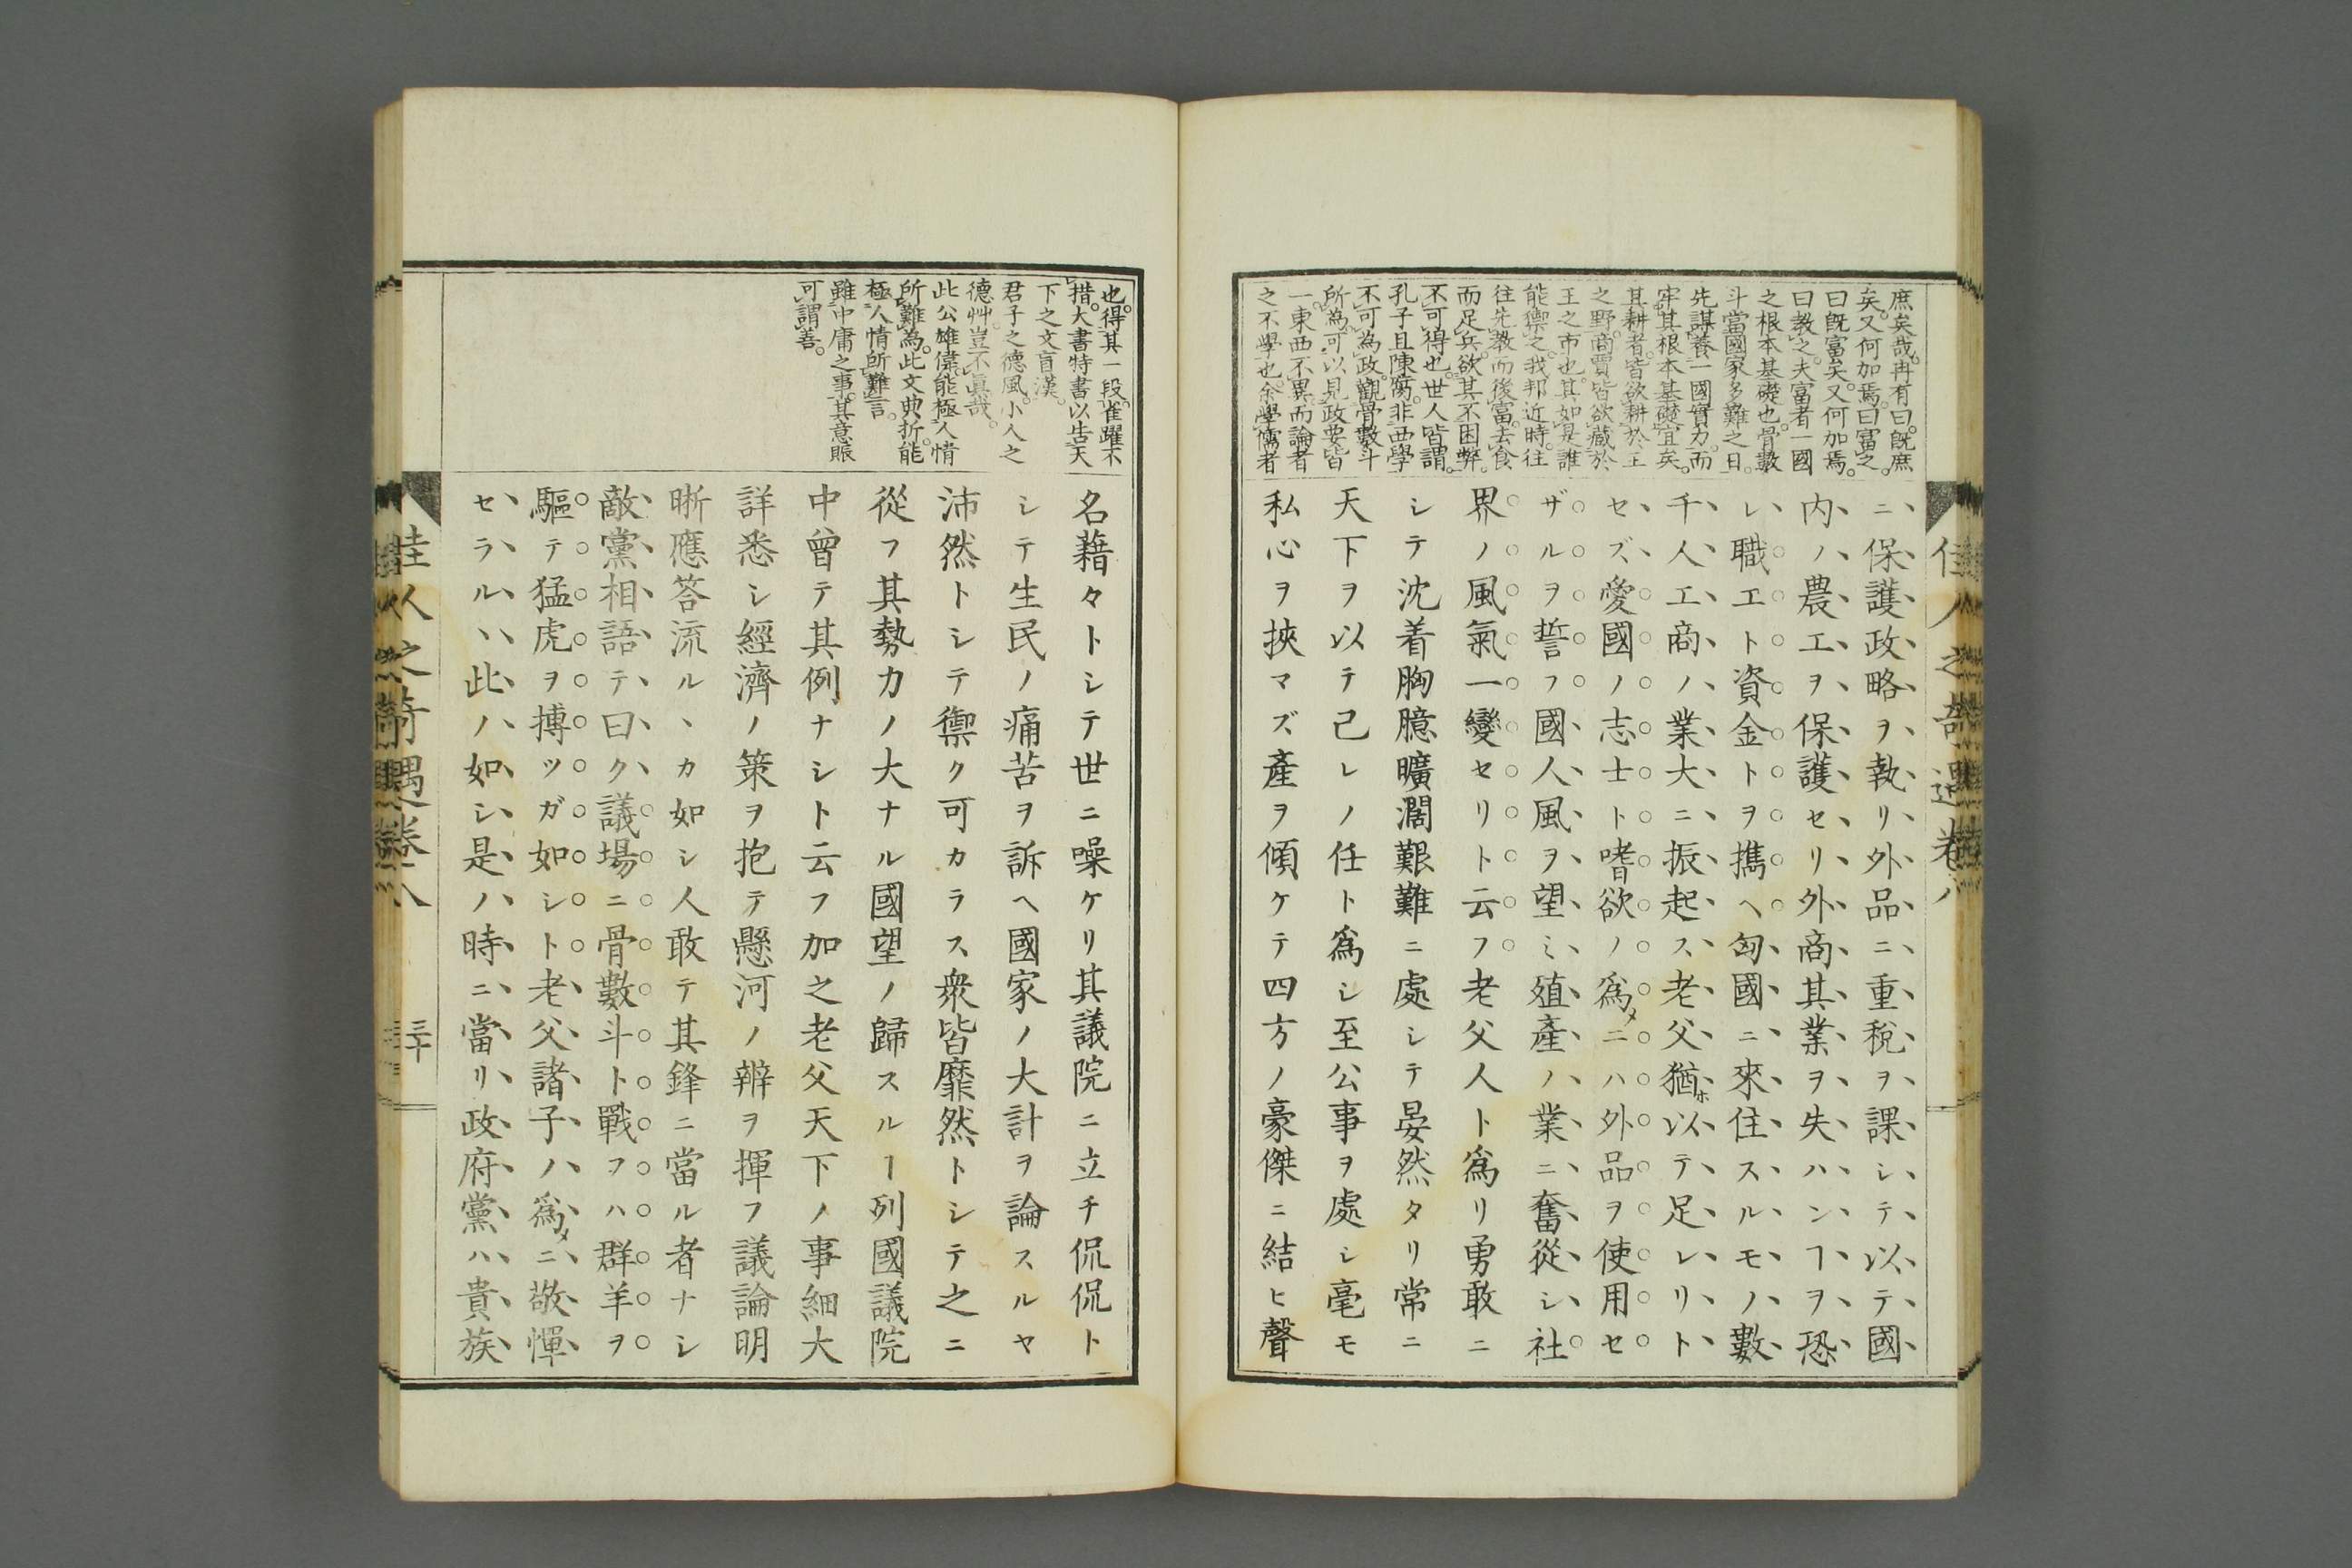 庶矣哉。冉有曰。既庶
矣。又何加焉。曰富之。
曰既富矣。又何加焉。
曰教之。夫富者一國
之根本基礎也。骨數
斗當國家多難之日。
先謀養一國實力。而
牢其根本基礎宜矣。
其耕者。皆欲耕於王
之野。商賈皆欲藏於
王之市也。其如是誰
能禦之。我邦近時。往
往先教而後富。去食
而足兵。欲其不困弊。
不可得也。世人皆謂。
孔子且陳腐。非西學
不可為政。觀骨數斗
所為。可以見政要皆
一。東西不異。而論者
之不學也。余學儒者
ニ保護政略ヲ執リ外品ニ重稅ヲ課シテ以テ國
内ノ農工ヲ保護セリ外商其業ヲ失ハンヿヲ恐
レ職工ト資金トヲ擕ヘ匈國ニ來住スルモノ數
千人工商ノ業大ニ振起ス老父猶ホ以テ足レリト
セズ愛國ノ志士ト嗜欲ノ爲メニハ外品ヲ使用セ
ザルヲ誓フ國人風ヲ望ミ殖產ノ業ニ奮從シ社
界ノ風氣一變セリト云フ老父人ト爲リ勇敢ニ
シテ沈着胸臆曠濶艱難ニ處シテ晏然タリ常ニ
天下ヲ以テ己レノ任ト爲シ至公事ヲ處シ毫モ
私心ヲ挾マズ產ヲ傾ケテ四方ノ豪傑ニ結ヒ聲
佳人之奇遇卷八
也。得其一段。雀躍不
措。大書特書以告天
下之文盲漢。
君子之德風。小人之
德艸。豈不眞哉。
此公雄偉。能極人情
所難為。此文典折。能
極人情所難言。
雖中庸之事。其意賑
可謂善。
名藉々トシテ世ニ噪ケリ其議院ニ立チ侃侃ト
シテ生民ノ痛苦ヲ訴ヘ國家ノ大計ヲ論スルヤ
沛然トシテ禦ク可カラス衆皆靡然トシテ之ニ
從フ其勢力ノ大ナル國望ノ歸スルヿ列國議院
中曾テ其例ナシト云フ加之老父天下ノ事細大
詳悉シ經濟ノ策ヲ抱テ懸河ノ辨ヲ揮フ議論明
晰應答流ルヽカ如シ人敢テ其鋒ニ當ル者ナシ
敵黨相語テ曰ク議場ニ骨數斗ト戰フハ群羊ヲ
驅テ猛虎ヲ搏ツガ如シト老父諸子ノ爲メニ敬憚
セラルヽ此ノ如シ是ノ時ニ當リ政府黨ハ貴族
佳人之奇遇卷八
三十